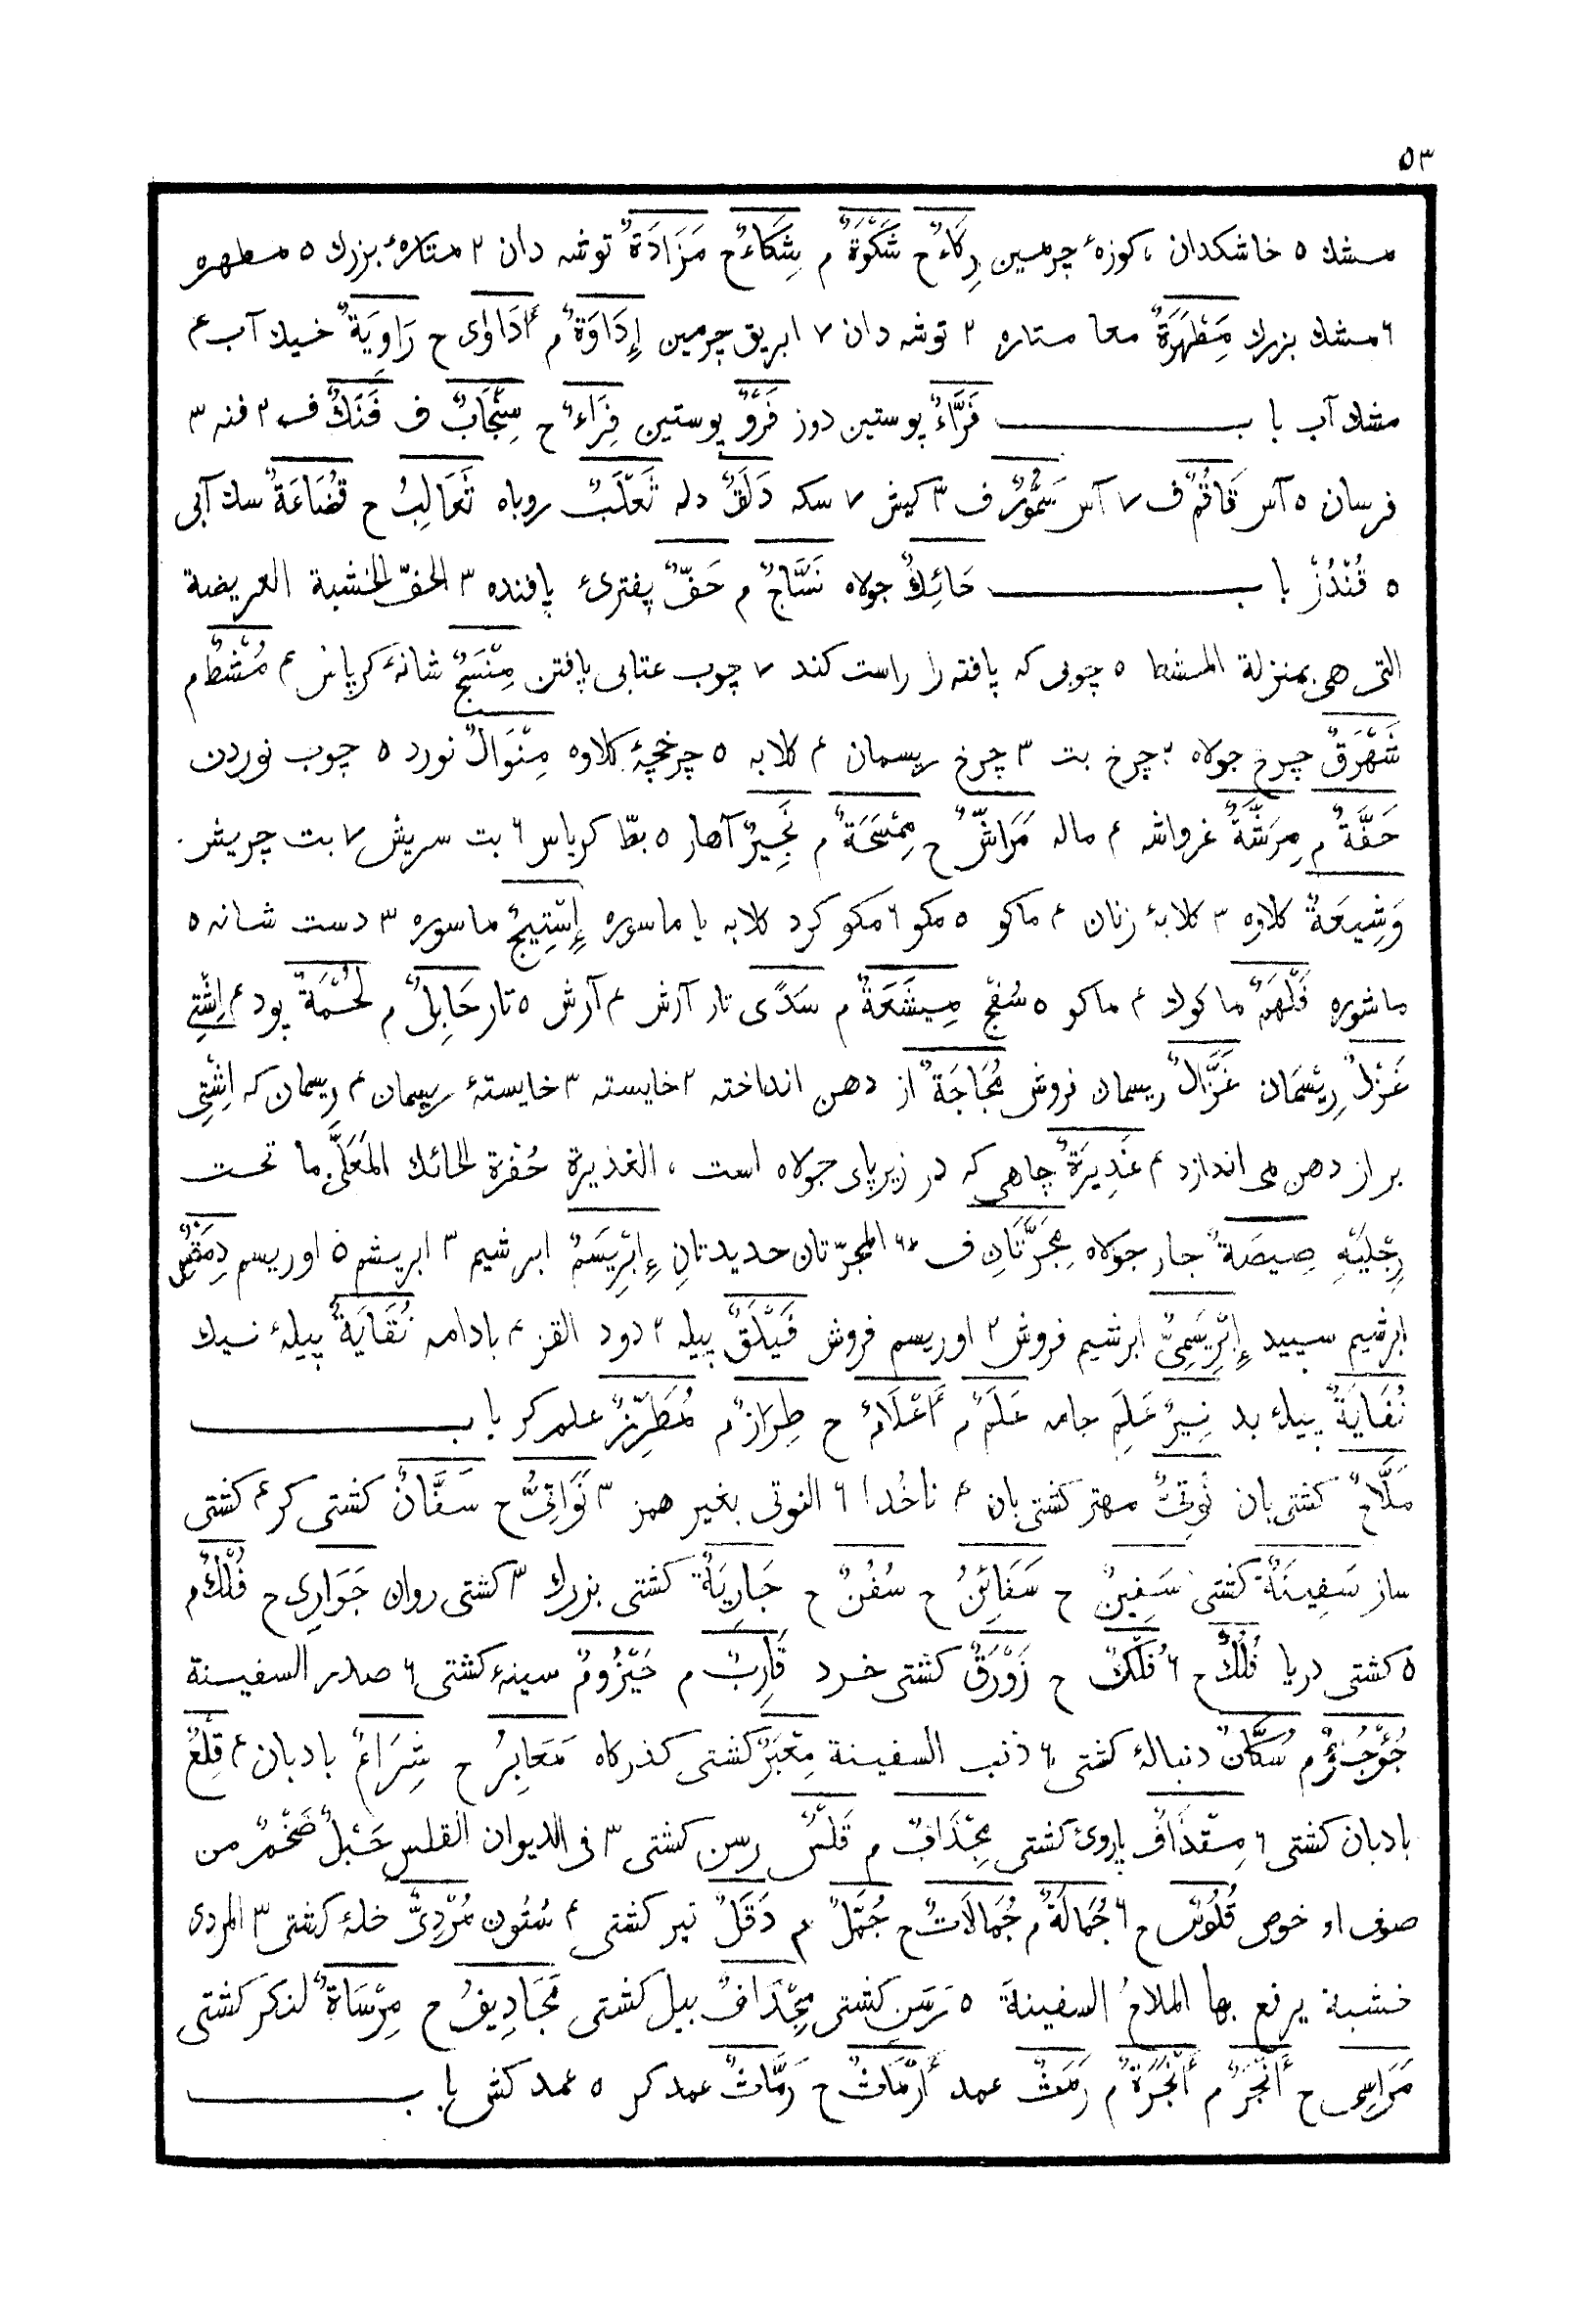 ٥٣
مشك ٥ خاشكدان ، كوزهٔ چرمين رِكَاءٌ ح شَكْوَةٌ م شِكَاءٌ ح مَزَادَةٌ توشه دان ٢ مستارهٔ بزرك ٥ مطهره
٦ مشك بزرك مِطْهَرَةٌ معا مستاره ٢ توشه دان ٧ ابريق چرمين إِدَاوَةٌ م أَدَاوٰى ح رَاوِيَةٌ خيك آب ۴
مشك آب باب فَرَّاءٌ پوستين دوز فَرْوٌ پوستين فِرَاءٌ ح سِنْجَابٌ ف فَنَكٌ ف ٢ فنه ٣
فرسان ٥ آس قَاقُمٌ ف ٧ آس سَمُّورٌ ف ٣ كيش ٧ سكه دَلَقٌ دله ثَعْلَبٌ روباه ثَعَالِبُ ح قُضَاعَةٌ سك آبى
٥ قُنْدُزْ باب حَائِكٌ جولاه نَسَّاجٌ م حَفٌّ پفترىٔ بافنده ٣ الحفّ الخشبة العريضة
التى هى بمنزلة المشط ٥ چوبى كه بافته را راست كند ٧ چوب عتابى بافتن مِنْسَجٌ شانهٔ كرباس ۴ مُشْطٌ م
شَهْرَقٌ چرخ جولاه ٢ چرخ بت ٣ چرخ ريسمان ۴ كلابه ٥ چرخچهٔ كلاوه مِنْوَالٌ نورد ٥ چوب نوردن
حَفَّةٌ م مِرَشَّةٌ غرواشه ۴ ماله مَرَاشُّ ح مِمْسَحَةٌ م نَجِيرٌ آهار ٥ بطّ كرباس ٦ بت سريش ٧ بت چريش
وَشِيعَةٌ كلاوه ٣ كلابهٔ زنان ۴ ماكو ٥ مكو ٦ مكو كرد كلابه يا ماسوره إِسْتِيجٌ ماسوره ٣ دست شانه ٥
ماشوره فَلْهَمٌ ماكوك ۴ ماكو ٥ سُفج مِيشَعَةٌ م سَدًى تار آرش ۴ آرش ٥ تار حَابِلٌ م لُحْمَةٌ پود ۴ اِشْتِى
غَزْلٌ رِيْسْمَان غَزَّالٌ ريسمان فروش مُجَاجَةٌ از دهن انداخته ٢ خايسته ٣ خايستهٔ ريسمان ۴ ريسمان كه اِشْتِى
بر از دهن مى اندازد ۴ غَدِيرَةٌ چاهى كه در زير پاى جولاه است ، الغذيرة حُفرة الحائك المَعَلَّى ما تحت
رِجْلَيْهِ صِيصَةٌ جار جولاه مِجَرَّتَانِ ف ٦ المجرّتان حديدتانِ إِبْرِيَسَمٌ ابرشيم ٣ ابريشم ٥ اوريسم دِمَقْسٌ
ابرشيم سپيد إِبْرِيسَمِىٌّ ابرشيم فروش ٢ اوريسم فروش فَيْلَقٌ پيله ٢ دود القز ۴ بادامه نُقَايَةٌ پيلهٔ نيك
نُفَايَةٌ پيلهٔ بد نِيرٌ عَلَمِ جامه عَلَمٌ م أَعْلَامٌ ح طِرَازٌ م مُطَرِّزٌ علم كر باب
مَلَّاحٌ كشتى بان نُوتِىٌّ مهتر كشتى بان ۴ ناخُدا ٦ النوتى بغير همز ٣ نَوَاتِىُّ ح سَفَّانٌ كشتى كر ۴ كشتى
ساز سَفِينَةٌ كشتى سَفِينٌ ح سَفَائِنُ ح سُفُنٌ ح جَارِيَةٌ كشتى بزرك ٣ كشتى روان جَوَارِى ح فُلْكٌ م
٥ كشتى دريا فُلْكٌ ح ٦ فُلْكٌ ح زَوْرَقٌ كشتى خرد قَارِبٌ م حَيْزُومٌ سينهٔ كشتى ٦ صدر السفينة
جُؤْجُؤٌ م سُكَّانٌ دنبالهٔ كشتى ٦ ذنب السفينة مِعْبَرٌ كشتى كذركاه مَعَابِرُ ح شِرَاعٌ بادبان ۴ قِلْعٌ
بادبان كشتى ٦ مِقْذَافٌ پاروىٔ كشتى مِجْذَافٌ م قَلْسٌ رسن كشتى ٣ فى الديوان القلس حَبْلٌ ضَخْمٌ من
صوف او خوص قُلُوسٌ ح ٦ جُمَالَةٌ م جُمَالَاتٌ ح جُمَّلٌ م دَقَلٌ تير كشتى ۴ سُتُون مُرْدِىٌّ خلهٔ كشتى ٣ المردى
خشبة يرفع بها الملاحُ السفينةَ ٥ رَسَنِ كشتى مِجْذَافٌ بيل كشتى مَجَاذِيفُ ح مِرْسَاةٌ لنكر كشتى
مَرَاسِى ح أَنْجَرٌ م أَنْجَرَةٌ م رَمَثٌ عمد أَرْمَاثٌ ح رَمَّاثٌ عمد كر ٥ عمد كش باب